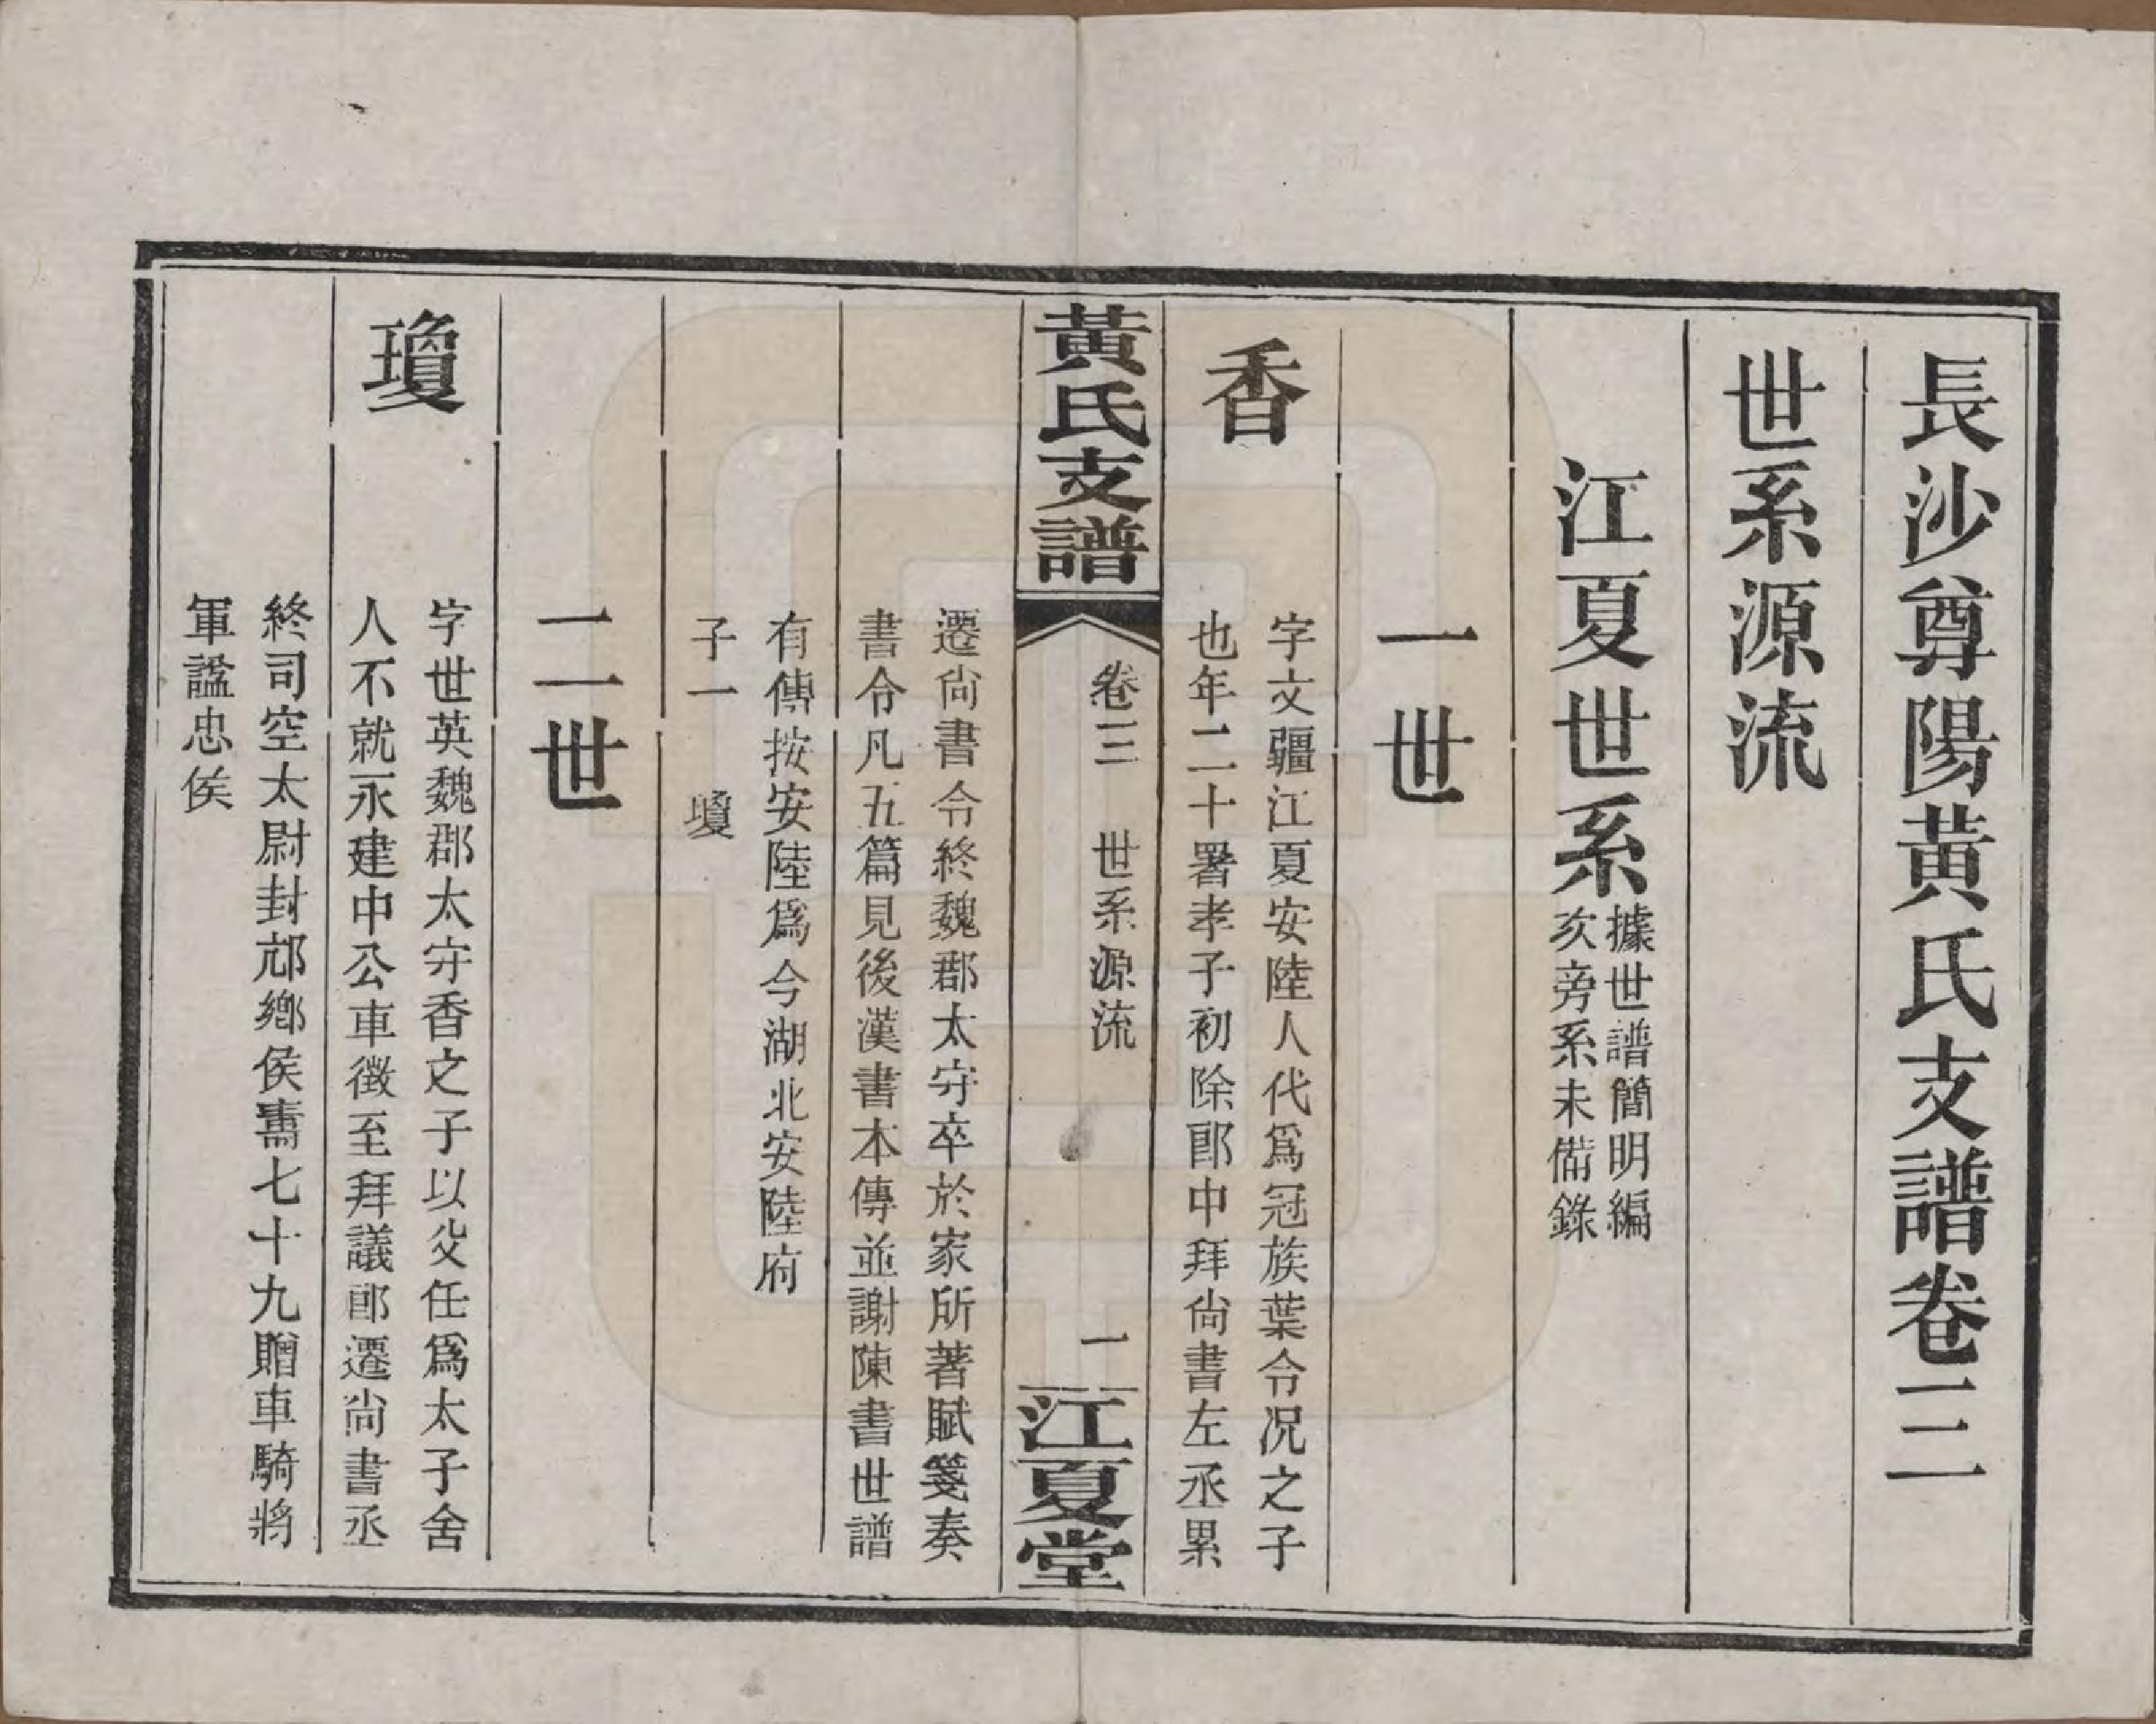 長沙尊陽黃氏支譜卷三
世系源流
江夏世系
據世譜簡明編
次旁系未備錄
一世
香
字文疆江夏安陸人代爲冠族葉令况之子
也年二十署孝子初除郎中拜尙書左丞累
黃氏支譜
卷三 世系源流
一
江夏堂
遷尙書令終魏郡太守卒於家所著賦箋奏
書令凡五篇見後漢書本傳並謝陳書世譜
有傳按安陸爲今湖北安陸府
子一 瓊
二世
瓊
字世英魏郡太守香之子以父任爲太子舍
人不就永建中公車徵至拜議郎遷尙書丞
終司空太尉封邟鄉侯壽七十九贈車騎將
軍謚忠侯